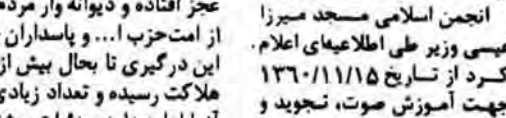 انجمن اسلامی مسجد میرزا
عیسی وزیر طی اطلاعیه‌ای اعلام
کرد از تاریخ ۱۳۶۰/۱۱/۱۵
جهت آموزش صوت، تجوید و
عجز افتاده و دیوانه وار مردم
از امت حزب ا... و پاسداران
این درگیری تا بحال بیش از
هلاکت رسیده و تعداد زیادی